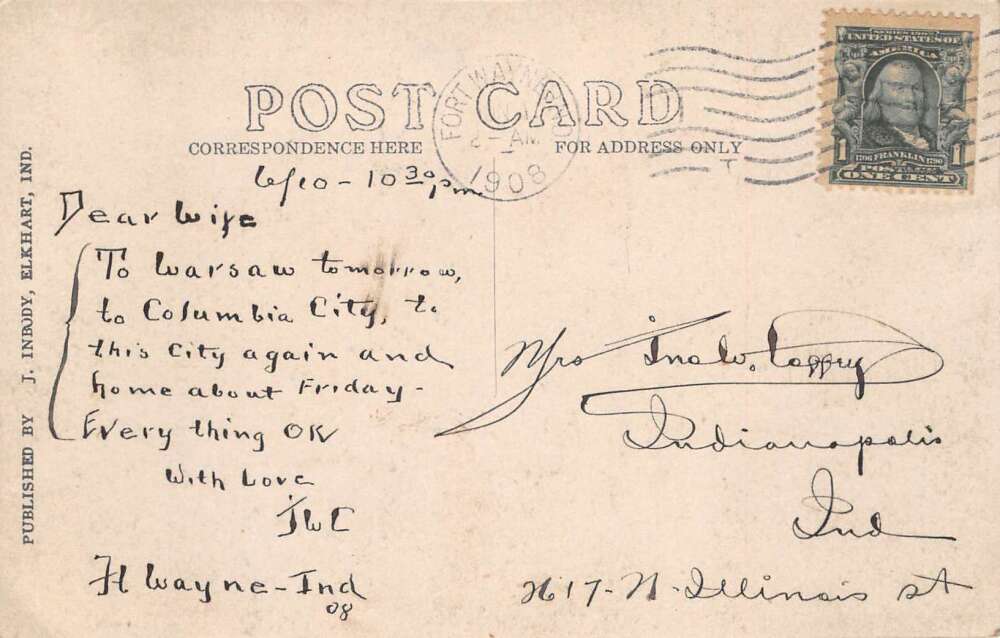 POST CARD
CORRESPONDENCE HERE
FOR ADDRESS ONLY
PUBLISHED BY J. INBODY, ELKHART, IND.
FORT WAYNE, IND
AM
1908
SERIES 1902
UNITED STATES OF
AMERICA
1706 FRANKLIN 1790
1 1
POSTAGE
ONE CENT
6/10 - 10 30 pm
Dear Wife
To Warsaw tomorrow,
to Columbia City, to
this City again and
home about Friday -
Every thing OK
With Love
JWC
Ft Wayne - Ind
08
Mrs Jno W.
Indianapolis
Ind
2617 - N. Illinois st